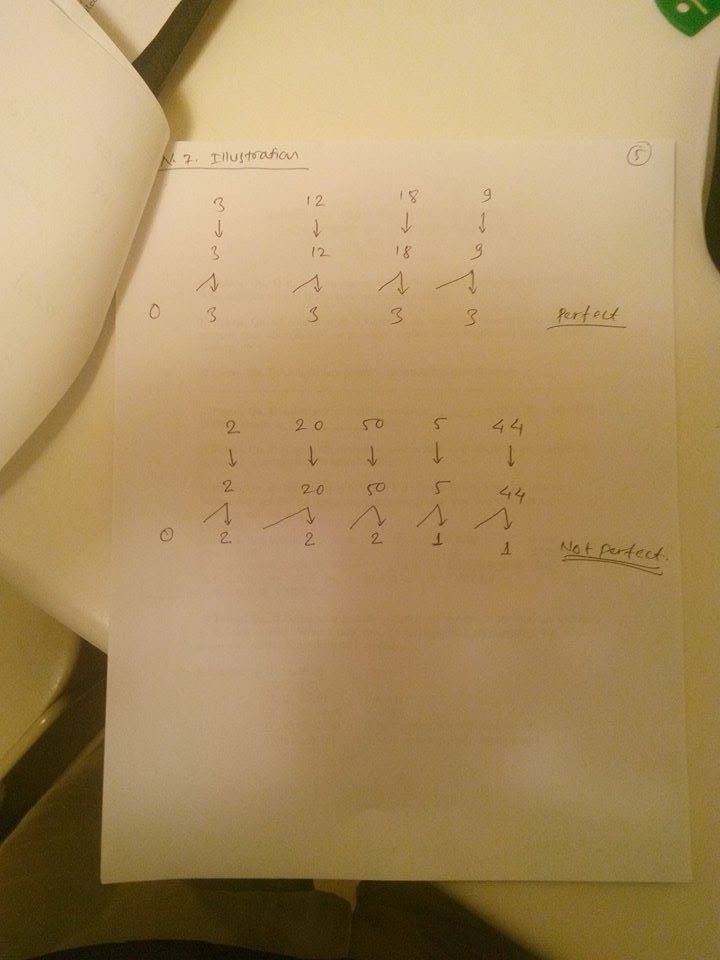 N. 7. Illustration 5
3 12 18 9
3 12 18 9
0 3 3 3 3 Perfect
2 20 50 5 44
2 20 50 5 44
0 2 2 2 1 1 Not perfect.